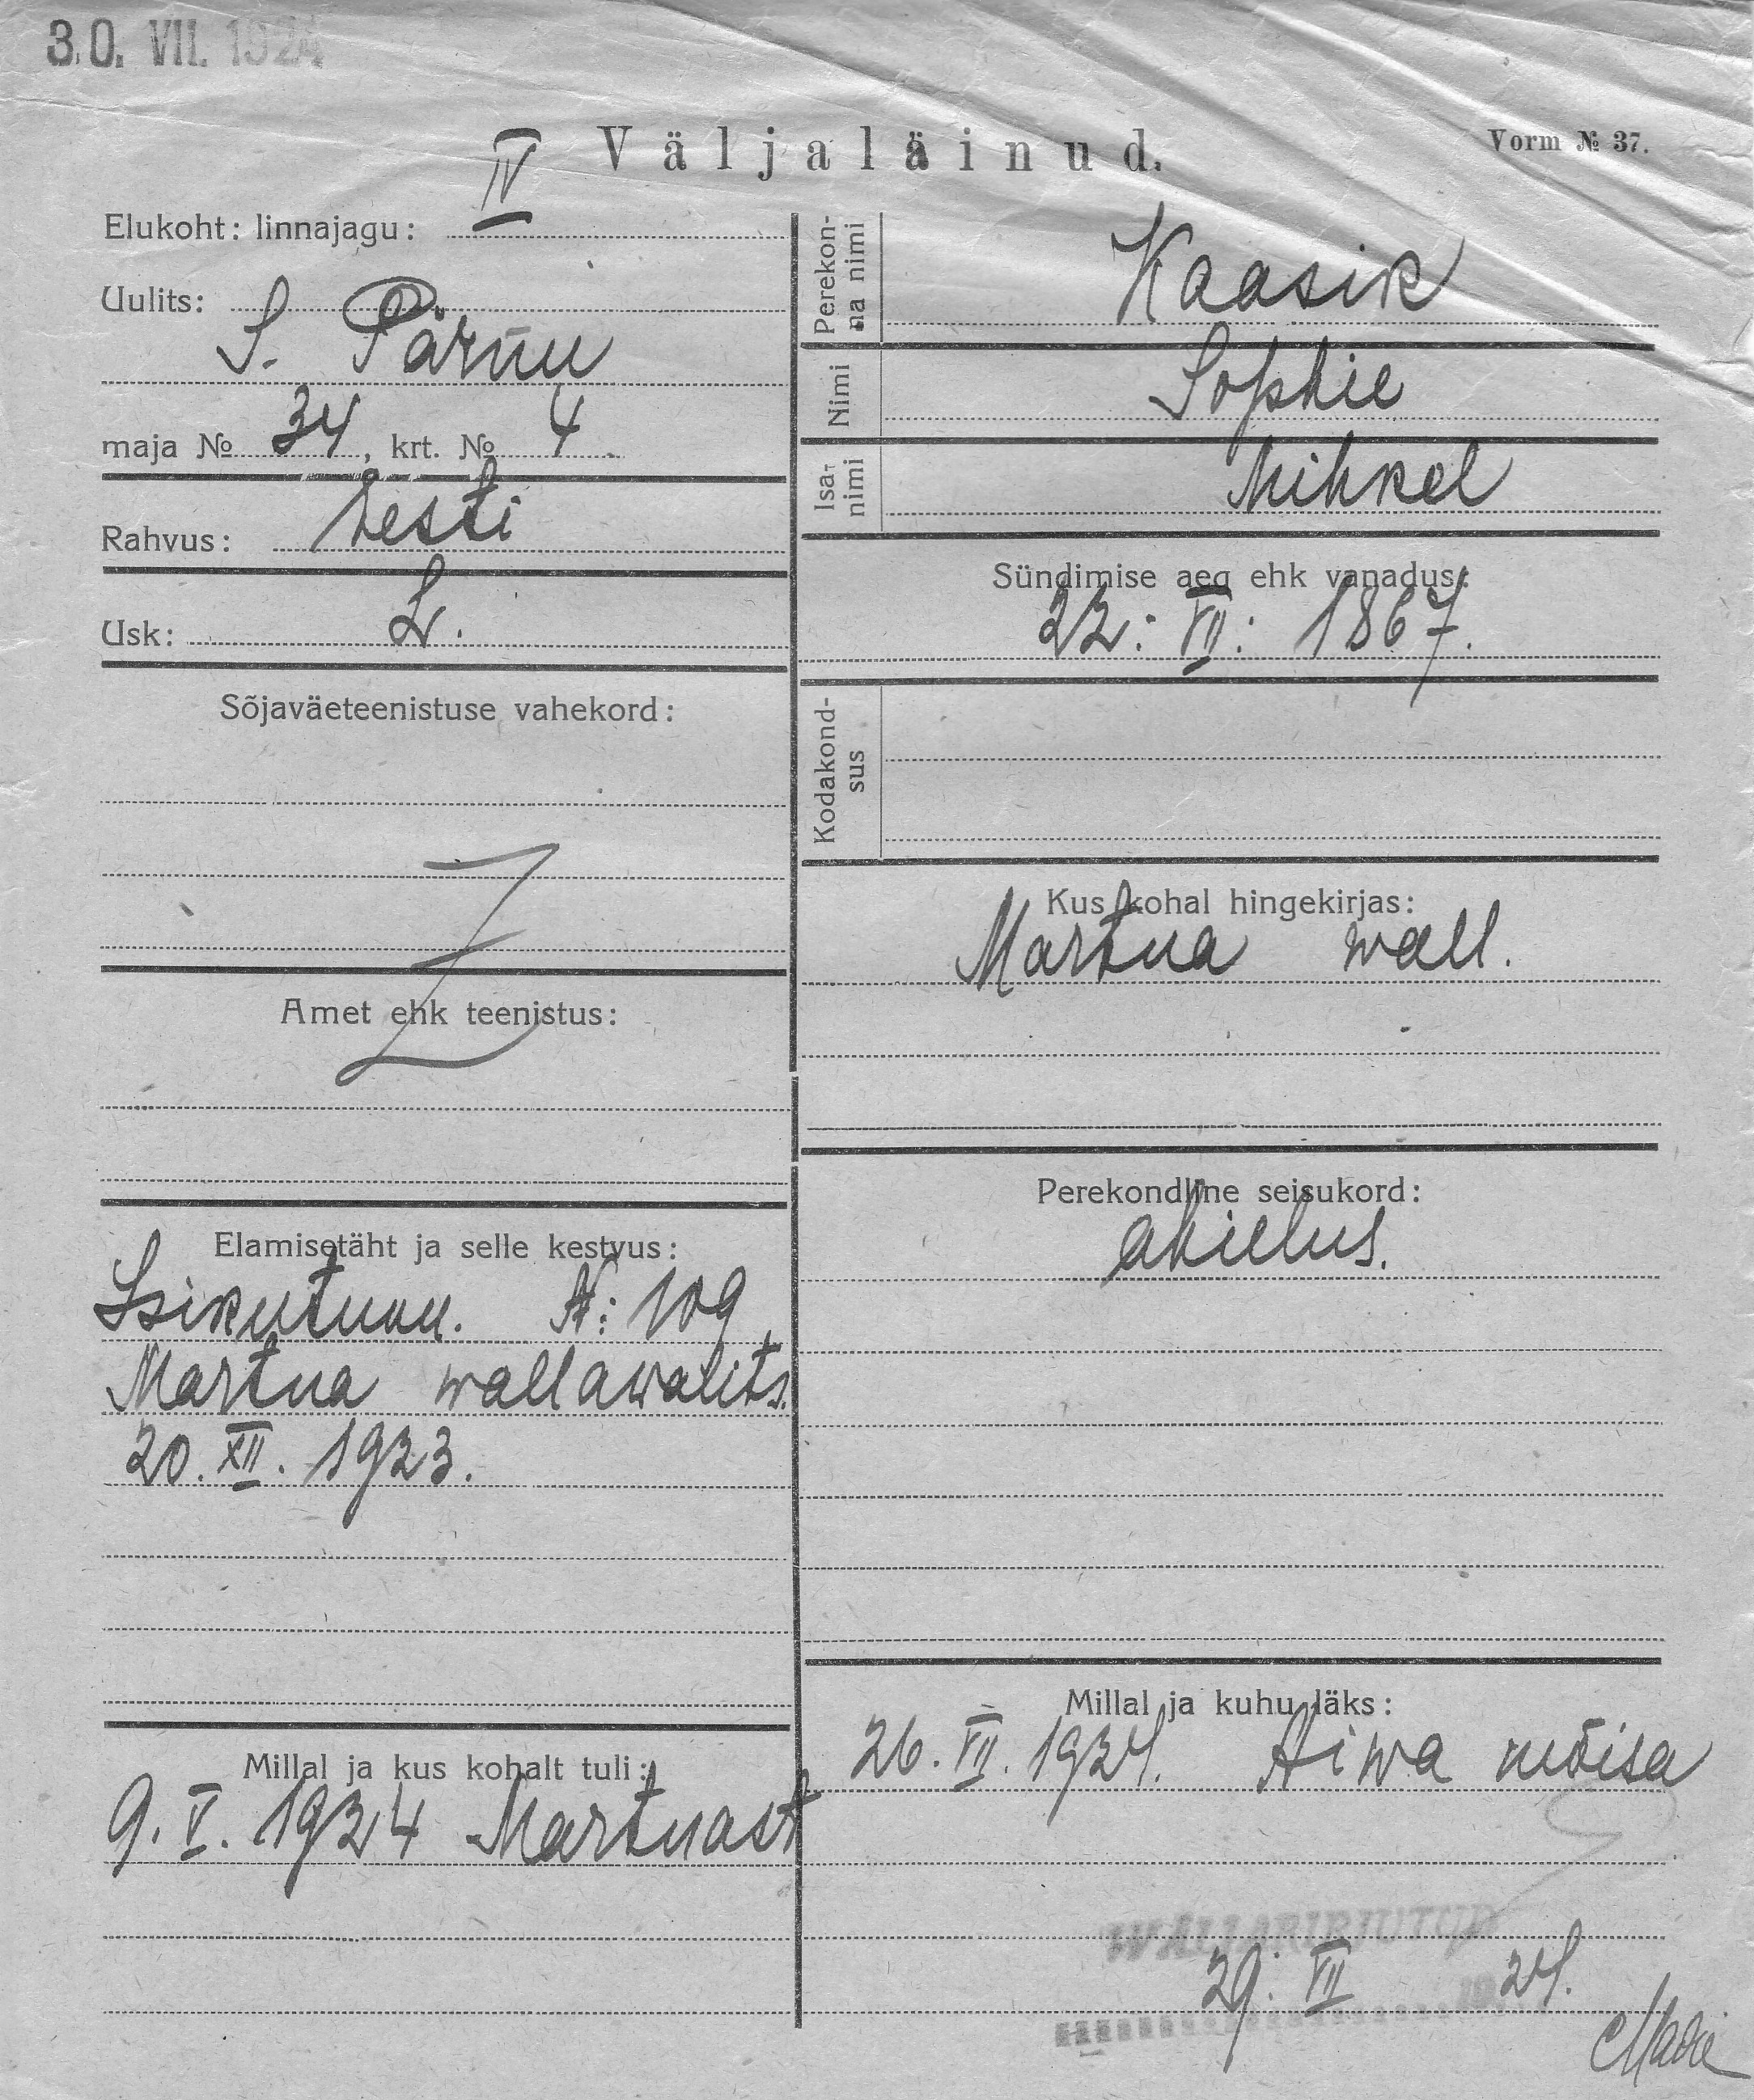 30. VII. 1924
Väljaläinud.
Vorm № 37.
Elukoht: linnajagu: IV
Uulits:
S. Pärnu
maja № 34, krt. № 4
Rahvus: Eesti
Usk: L.
Sõjaväeteenistuse vahekord:
Amet ehk teenistus:
Elamisetäht ja selle kestvus:
Isikutunn. N: 109
Martna wallawalits.
20. XII. 1923.
Millal ja kus kohalt tuli:
9. V. 1924 Martnast
Perekonna nimi
Kaasik
Nimi
Sophie
Isanimi
Mihkel
Sündimise aeg ehk vanadus:
22: VII: 1867.
Kodakondsus
Kus kohal hingekirjas:
Martna wall.
Perekondline seisukord:
abielus.
Millal ja kuhu läks:
26. VII. 1924. Aiwa mõisa
WÄLJAKIRJUTUD
29. VII 1924.